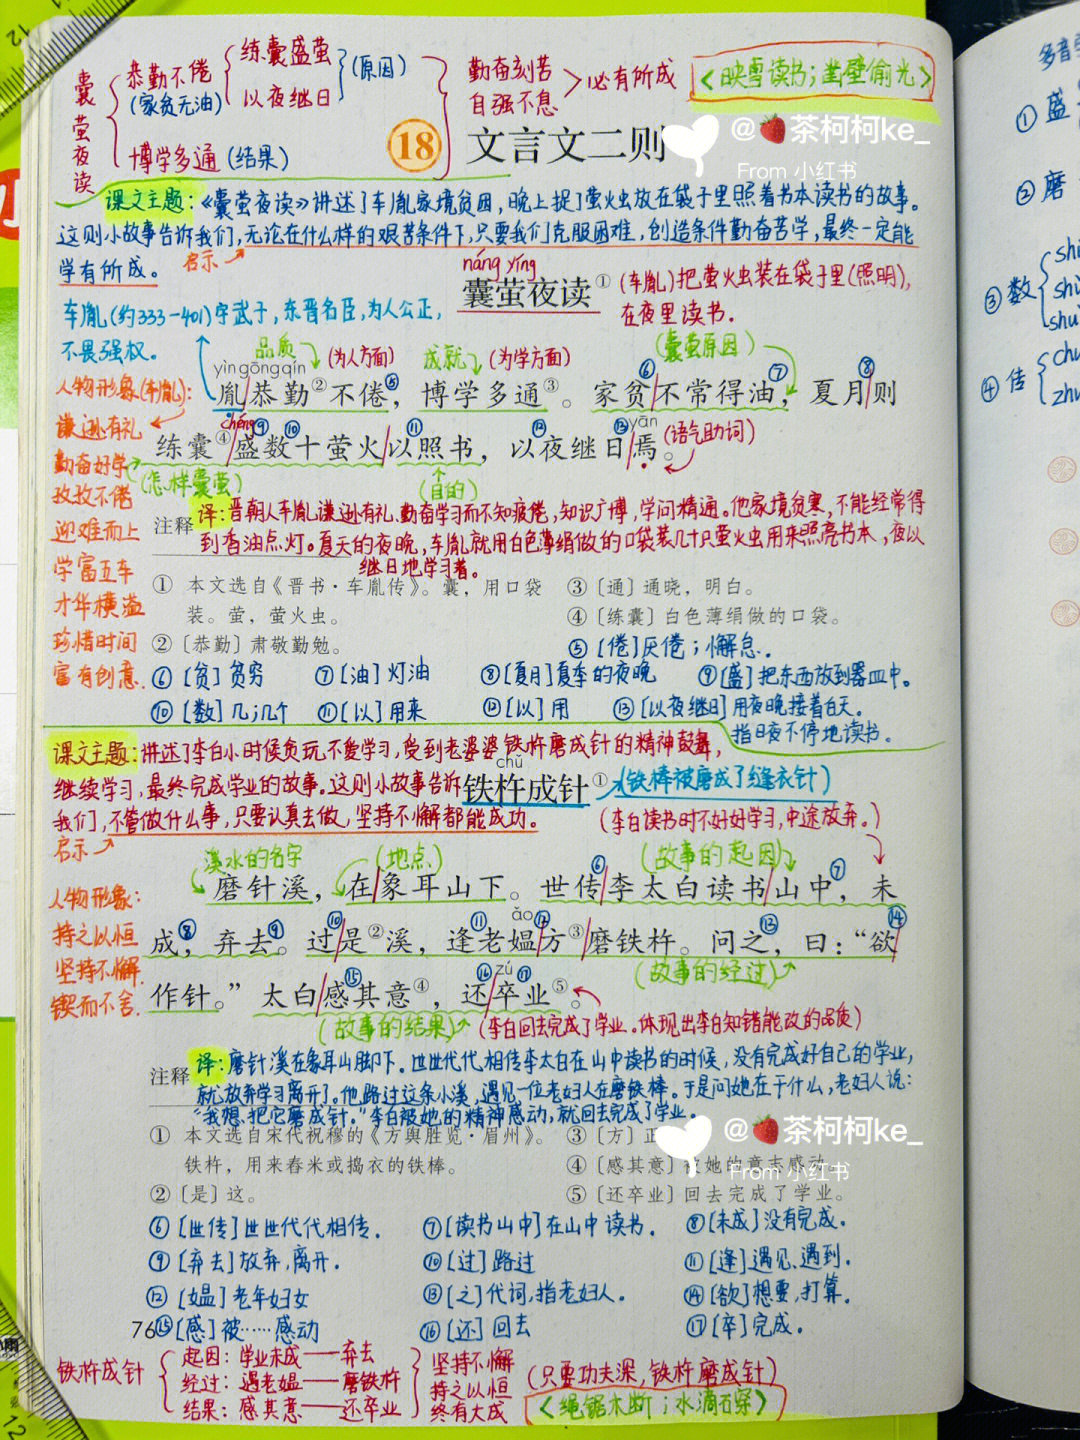 囊萤夜读
恭勤不倦
(家贫无油)
练囊盛萤
以夜继日
(原因)
博学多通(结果)
勤奋刻苦
自强不息
必有所成
<映雪读书;凿壁偷光>
18 文言文二则
@🍓茶柯柯ke_
From 小红书
课文主题:《囊萤夜读》讲述了车胤家境贫困,晚上捉了萤火虫放在袋子里照着书本读书的故事。
这则小故事告诉我们,无论在什么样的艰苦条件下,只要我们克服困难,创造条件勤奋苦学,最终一定能
学有所成。
启示
náng yíng
囊萤夜读①
(车胤)把萤火虫装在袋子里(照明),
在夜里读书.
车胤(约333-401)字武子,东晋名臣,为人公正,
不畏强权。
品质 (为人方面) 成就 (为学方面) (囊萤原因)
yìn gōng qín
胤恭勤②不倦⑤,博学多通③。家贫⑥不常得油⑦,夏月⑧则
chéng
yān
练囊④盛⑨数⑩十萤火以⑪照书,以⑫夜继日⑬焉。
(语气助词)
(怎样囊萤)
(目的)
人物形象(车胤):
谦逊有礼
勤奋好学
孜孜不倦
迎难而上
学富五车
才华横溢
珍惜时间
富有创意.
注释
译:晋朝人车胤谦逊有礼.勤奋学习而不知疲倦,知识广博,学问精通。他家境贫寒,不能经常得
到香油点灯。夏天的夜晚,车胤就用白色薄绢做的口袋装几十只萤火虫用来照亮书本,夜以
继日地学习着。
① 本文选自《晋书·车胤传》。囊,用口袋
装。萤,萤火虫。
② 〔恭勤〕肃敬勤勉。
③ 〔通〕通晓,明白。
④ 〔练囊〕白色薄绢做的口袋。
⑤ [倦]厌倦;懈怠.
⑥ [贫]贫穷 ⑦ [油]灯油 ⑧[夏月]夏季的夜晚 ⑨[盛]把东西放到器皿中.
⑩ [数]几;几个 ⑪ [以]用来 ⑫ [以]用 ⑬ [以夜继日]用夜晚接着白天。
指日夜不停地读书.
课文主题:讲述了李白小时候贪玩,不爱学习,受到老婆婆铁杵磨成针的精神鼓舞,
继续学习,最终完成学业的故事。这则小故事告诉
我们,不管做什么事,只要认真去做,坚持不懈都能成功。
启示
chǔ
铁杵成针①
(铁棒被磨成了缝衣针)
(李白读书时不好好学习,中途放弃。)
溪水的名字 (地点) (故事的起因)
磨针溪,在象耳山下。世传⑥李太白读书山中⑦,未
ǎo
成⑧,弃去⑨。过⑩是②溪,逢⑪老媪⑫方③磨铁杵。问之⑬,曰:“欲⑭
(故事的经过)
zú
作针。”太白感⑮其意④,还⑯卒⑰业⑤。
(故事的结果) (李白回去完成了学业。体现出李白知错能改的品质)
人物形象:
持之以恒
坚持不懈.
锲而不舍.
注释
译:磨针溪在象耳山脚下。世世代代相传李太白在山中读书的时候,没有完成好自己的学业,
就放弃学习离开了。他路过这条小溪,遇见一位老妇人在磨铁棒。于是问她在干什么,老妇人说:
“我想把它磨成针。”李白被她的精神感动,就回去完成了学业。
① 本文选自宋代祝穆的《方舆胜览·眉州》。
铁杵,用来舂米或捣衣的铁棒。
② 〔是〕这。
③ 〔方〕正
④ 〔感其意〕被她的意志感动。
⑤ 〔还卒业〕回去完成了学业。
@🍓茶柯柯ke_
From 小红书
⑥ [世传]世世代代相传. ⑦[读书山中]在山中读书. ⑧[未成]没有完成.
⑨ [弃去]放弃,离开. ⑩[过]路过 ⑪[逢]遇见、遇到.
⑫ [媪]老年妇女 ⑬[之]代词,指老妇人. ⑭[欲]想要,打算.
⑮[感]被……感动 ⑯[还]回去 ⑰[卒]完成.
76
铁杵成针
起因:学业未成——弃去
经过:遇老媪——磨铁杵
结果:感其意——还卒业
坚持不懈
持之以恒
终有大成
(只要功夫深,铁杵磨成针)
<绳锯木断;水滴石穿>
多音
① 盛
② 磨
③ 数
④ 传